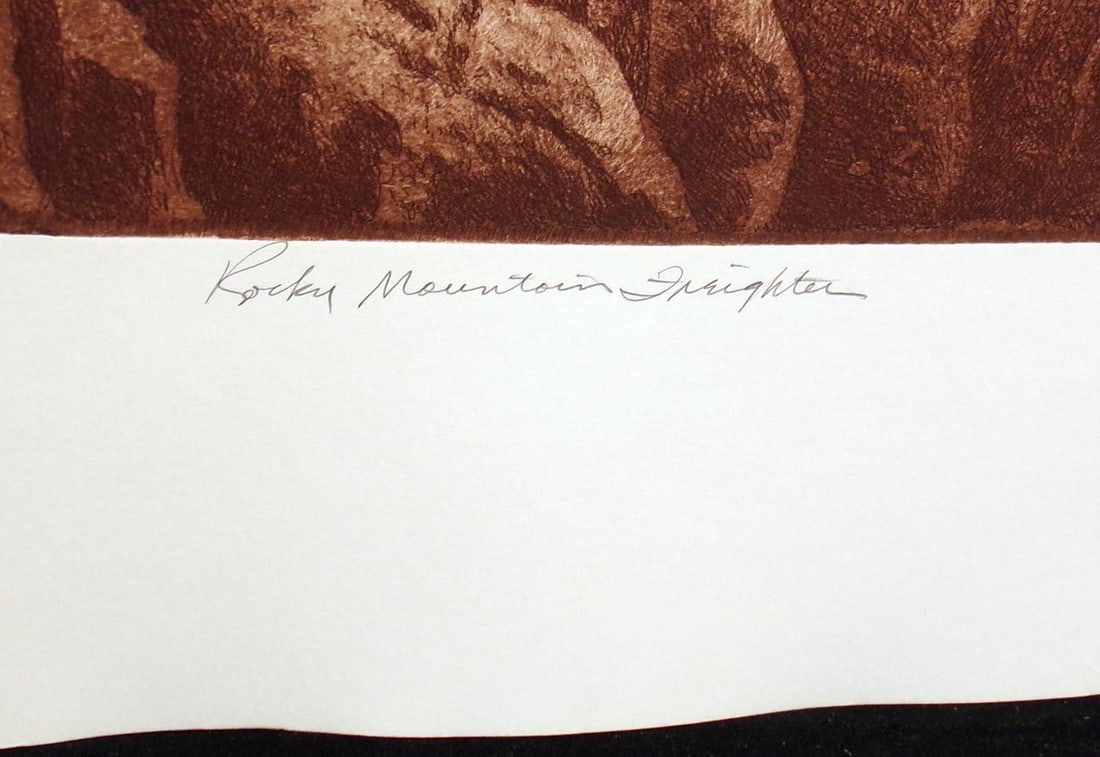 Rocky Mountain Freighter